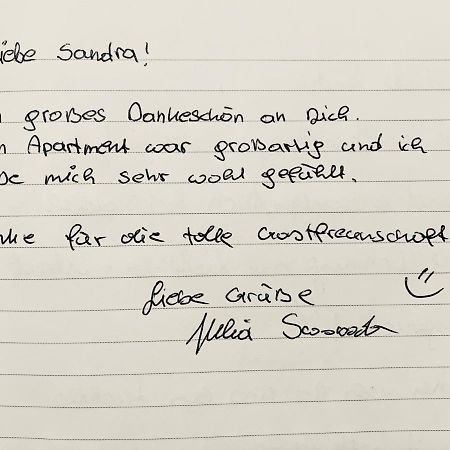 iebe Sandra!
n großes Dankeschön an Dich.
n Apartment war großartig und ich
be mich sehr wohl gefühlt.
nke für die tolle Gastfreunschaft
Liebe Grüße
Julia